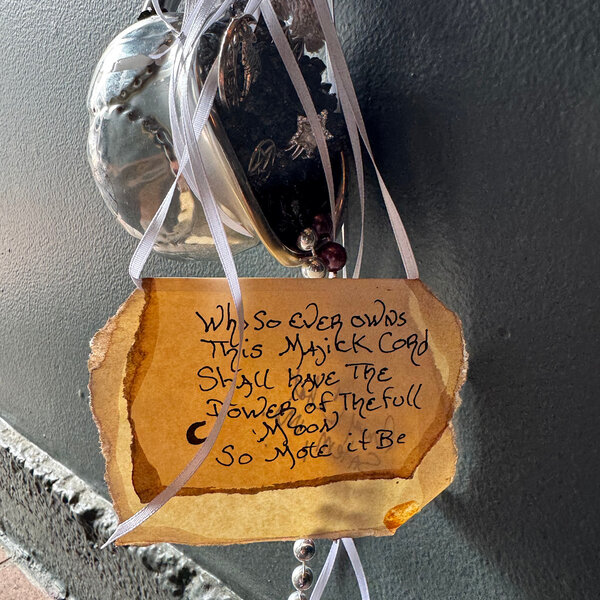 WhoSo EVER OWNS
This MAJicK CoRd
ShAll hAVE The
POWER of ThE Full
MOON
So MotE it BE